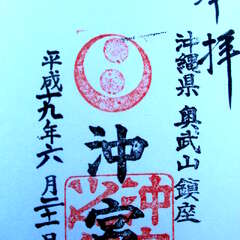 奉拝
沖縄県 奥武山 鎮座
沖宮
平成十九年六月二十一日